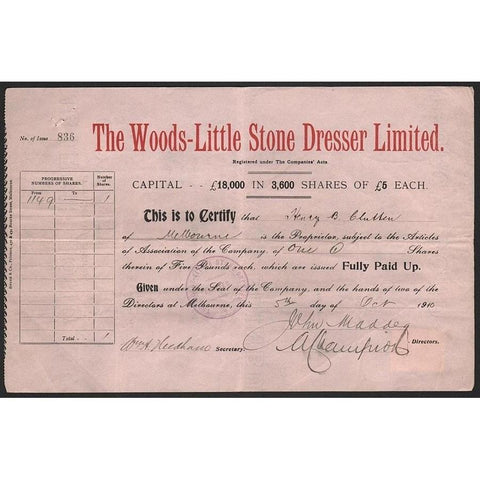 No. of Issue 836
The Woods-Little Stone Dresser Limited.
Registered under The Companies' Acts.
CAPITAL - - £18,000 IN 3,600 SHARES OF £5 EACH.
PROGRESSIVE NUMBERS OF SHARES.
Number of Shares.
From To
1149 1
Total - 1
This is to Certify that Henry B. Clutten
of Melbourne is the Proprietor, subject to the Articles
of Association of the Company of One Shares
therein of Five Pounds each, which are issued Fully Paid Up.
Given under the Seal of the Company, and the hands of two of the
Directors at Melbourne, this 5th day of Oct 1910
John Madden
Needham Secretary.
Directors.